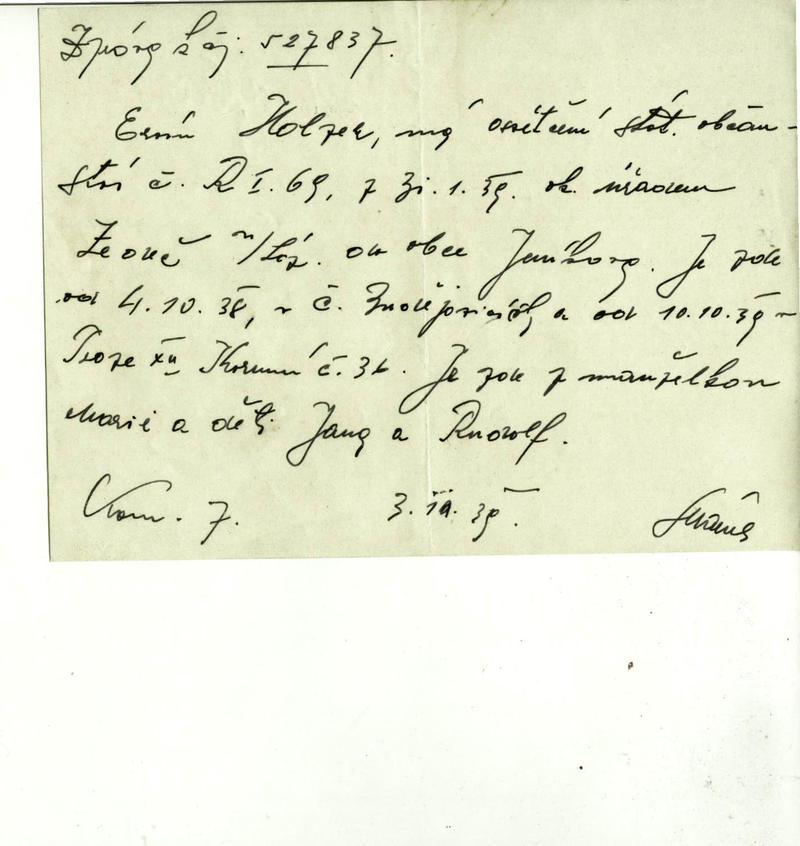 Zpráva k čj: 527837.
Ervín Holzer, má osvětčení stát. občan-
ství č. R I. 69, z 31. 1. 39. ok. úřadem
Ledeč n/Sáz. ow obce Jeníkova. Je zde
od 4. 10. 38, v č. a od 10. 10. 39 v
Praze XII Korunní č. 36. Je zde z manželkou
Marií a děti Jana a Rudolf.
Kom. 7. 3. 39.